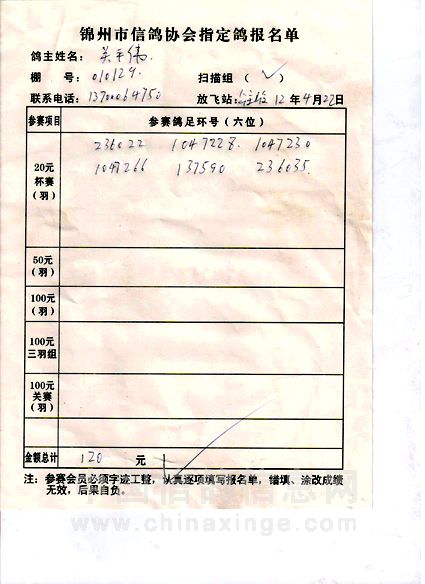 锦州市信鸽协会指定鸽报名单
鸽主姓名：关玉伟
棚 号：010129. 扫描组（✓）
联系电话：13700064750 放飞站： 12年4月22日
参赛项目 参赛鸽足环号（六位）
236022 1047228. 1047230
1047266 137590 236035.
20元
杯赛
（羽）
50元
（羽）
100元
（羽）
100元
三羽组
100元
关赛
（羽）
金额总计 120 元
注：参赛会员必须字迹工整，认真逐项填写报名单，错填、涂改成绩
无效，后果自负。
中国信鸽信息网
www.chinaxinge.com